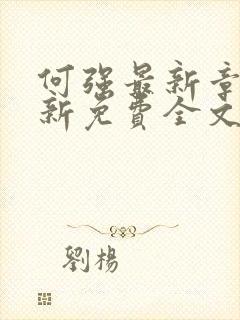 何强最新章
新免費全文
劉楊